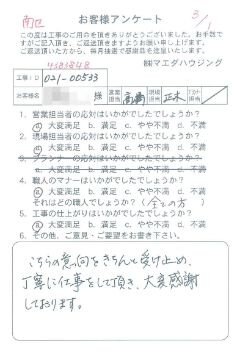 南区
3/1
お客様アンケート
この度は工事のご用命を頂きありがとうございました。お手数で
すがご記入頂き、ご返送頂きますようお願い申し上げます。
ご返送頂いた方から、毎月抽選で感謝品を送呈いたします。
㈱マエダハウジング
工事ID 021-00533
お客様名 様 営業担当 高橋 現場担当 正木
1. 営業担当者の応対はいかがでしたでしょうか?
a 大変満足 b. 満足 c. やや不満 d. 不満
2. 現場担当者の応対はいかがでしたでしょうか?
a 大変満足 b. 満足 c. やや不満 d. 不満
3. プランナーの応対はいかがでしたでしょうか?
a. 大変満足 b. 満足 c. やや不満 d. 不満
4. 職人のマナーはいかがでしたでしょうか?
a 大変満足 b. 満足 c. やや不満 d. 不満
それはどの職人でしょうか?(全ての方)
5. 工事の仕上がりはいかがでしたでしょうか?
a 大変満足 b. 満足 c. やや不満 d. 不満
6. その他、ご意見・ご要望をお書き下さい。
こちらの意向をきちんと受け止め、
丁寧に仕事をして頂き、大変感謝
しております。